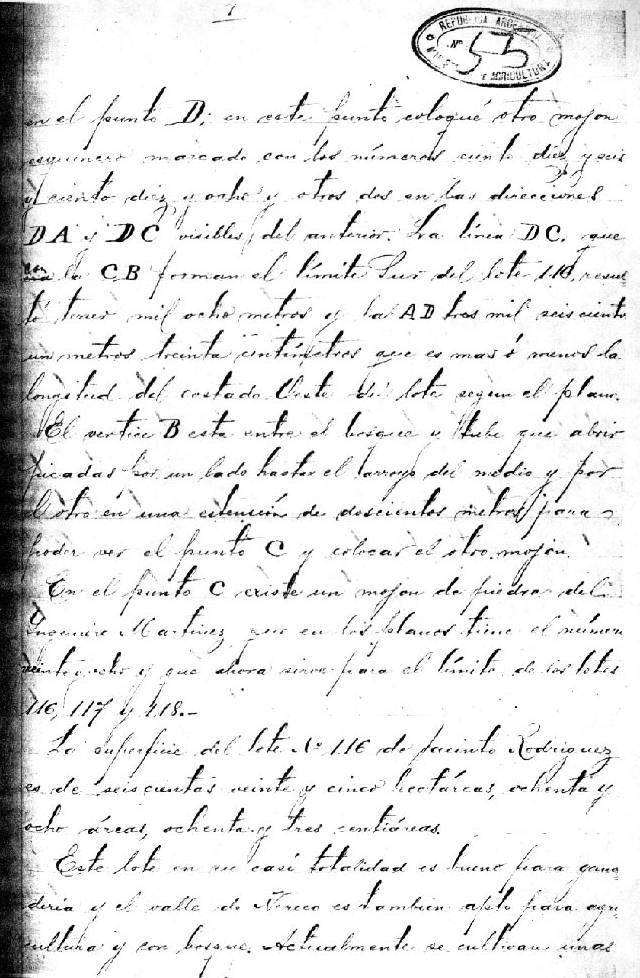 7
REPUBLICA ARGENTINA
Nº 53
AGRICULTURA
en el punto D; en este punto coloqué otro mojon
esquinero marcado con los números ciento diez y seis
y ciento diez y ocho y otros dos en las direcciones
DA y DC visibles del anterior. La línea DC, que
con la CB forman el límite Sur del lote 116, resul
tó tener mil ocho metros y la AD tres mil seiscientos
un metros treinta centímetros que es mas ó menos la
longitud del costado Oeste del lote segun el plano.
El vertice B esta entre el bosque y tube que abrir
picadas por un lado hasta el arroyo del medio y por
el otro en una estensión de doscientos metros para
poder ver el punto C y colocar el otro mojon.
En el punto C existe un mojon de piedra del
Ingeniero Martinez que en los planos tiene el número
veinte y ocho y que ahora sirve para el límite de los lotes
116, 117 y 118.-
La superficie del lote Nº 116 de Jacinto Rodriguez
es de seiscientas veinte y cinco hectáreas, ochenta y
ocho áreas, ochenta y tres centiáreas.
Este lote en su casi totalidad es bueno para gana
dería y el valle de es tambien apto para agri
cultura y con bosque. Actualmente se cultivan unas